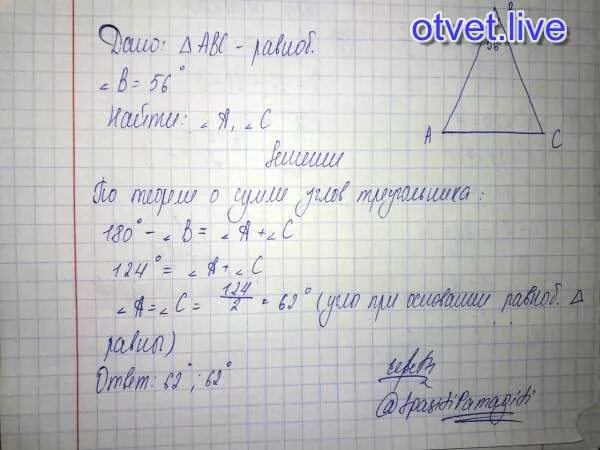 otvet.live
Дано: △ ABC - равноб.
∠B = 56°
Найти: ∠A, ∠C
B
56°
A
C
Решение
По теореме о сумме углов треугольника:
180° - ∠B = ∠A + ∠C
124° = ∠A + ∠C
∠A = ∠C = 124/2 = 62° (углы при основании равноб. △
равны)
Ответ: 62°; 62°